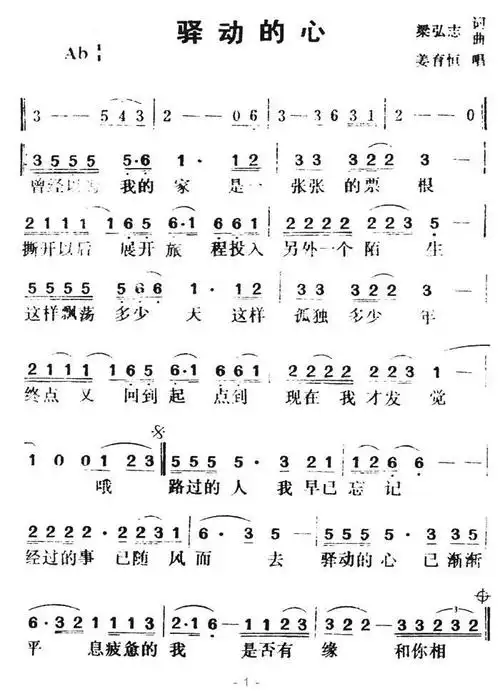 驿动的心
Ab
梁弘志 词曲
姜育恒 唱
3 - - 5 4 3 2 - - 0 6 3 - 3 6 3 1 2 - - 0
3 5 5 5 5·6 1· 1 2 3 3 3 2 2 3 -
曾经以为 我的 家 是一 张张 的票 根
2 1 1 1 1 6 5 6·1 6 6 1 2 2 2 2 2 2 3 5 -
撕开以后 展开 旅 程投入 另外一个 陌 生
5 5 5 5 5 6 6 1· 1 2 3 3 3 2 2 3 -
这样飘荡 多少 天 这样 孤独 多少 年
2 1 1 1 1 6 5 6·1 6 6 1 2 2 2 2 2 2 3 1 -
终点 又 回到 起 点到 现在 我 才发 觉
1 0 0 1 2 3 5 5 5 5· 3 2 1 1 2 6 6 -
哦 路过的 人 我 早已 忘记
2 2 2 2· 2 2 3 1 6· 3 5 - 5 5 5 5· 3 2 1
经过的事 已随 风而 去 驿动的 心 已 渐渐
6·3 2 1 1 1 3 2·1 6 - 6 1 2 3 3 3 2 3 2
平 息疲惫的 我 是否有 缘 和你相
- 1 -